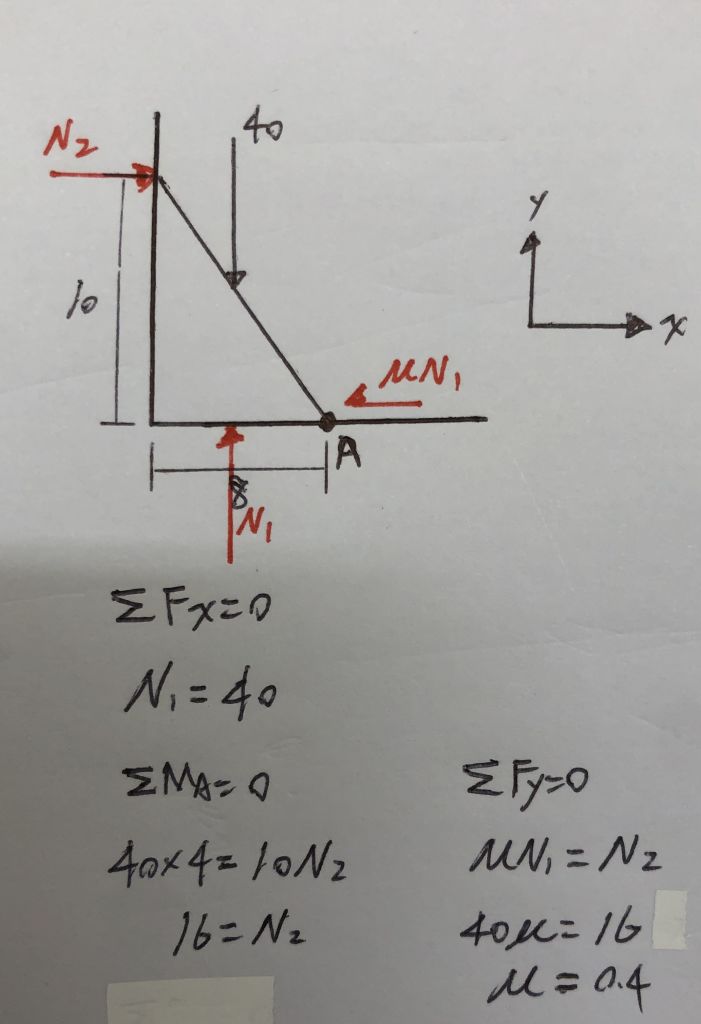 N₂
40
10
Y
X
μN₁
A
8
N₁
ΣFx=0
N₁=40
ΣMA=0
40×4=10N₂
16=N₂
ΣFy=0
μN₁=N₂
40μ=16
μ=0.4